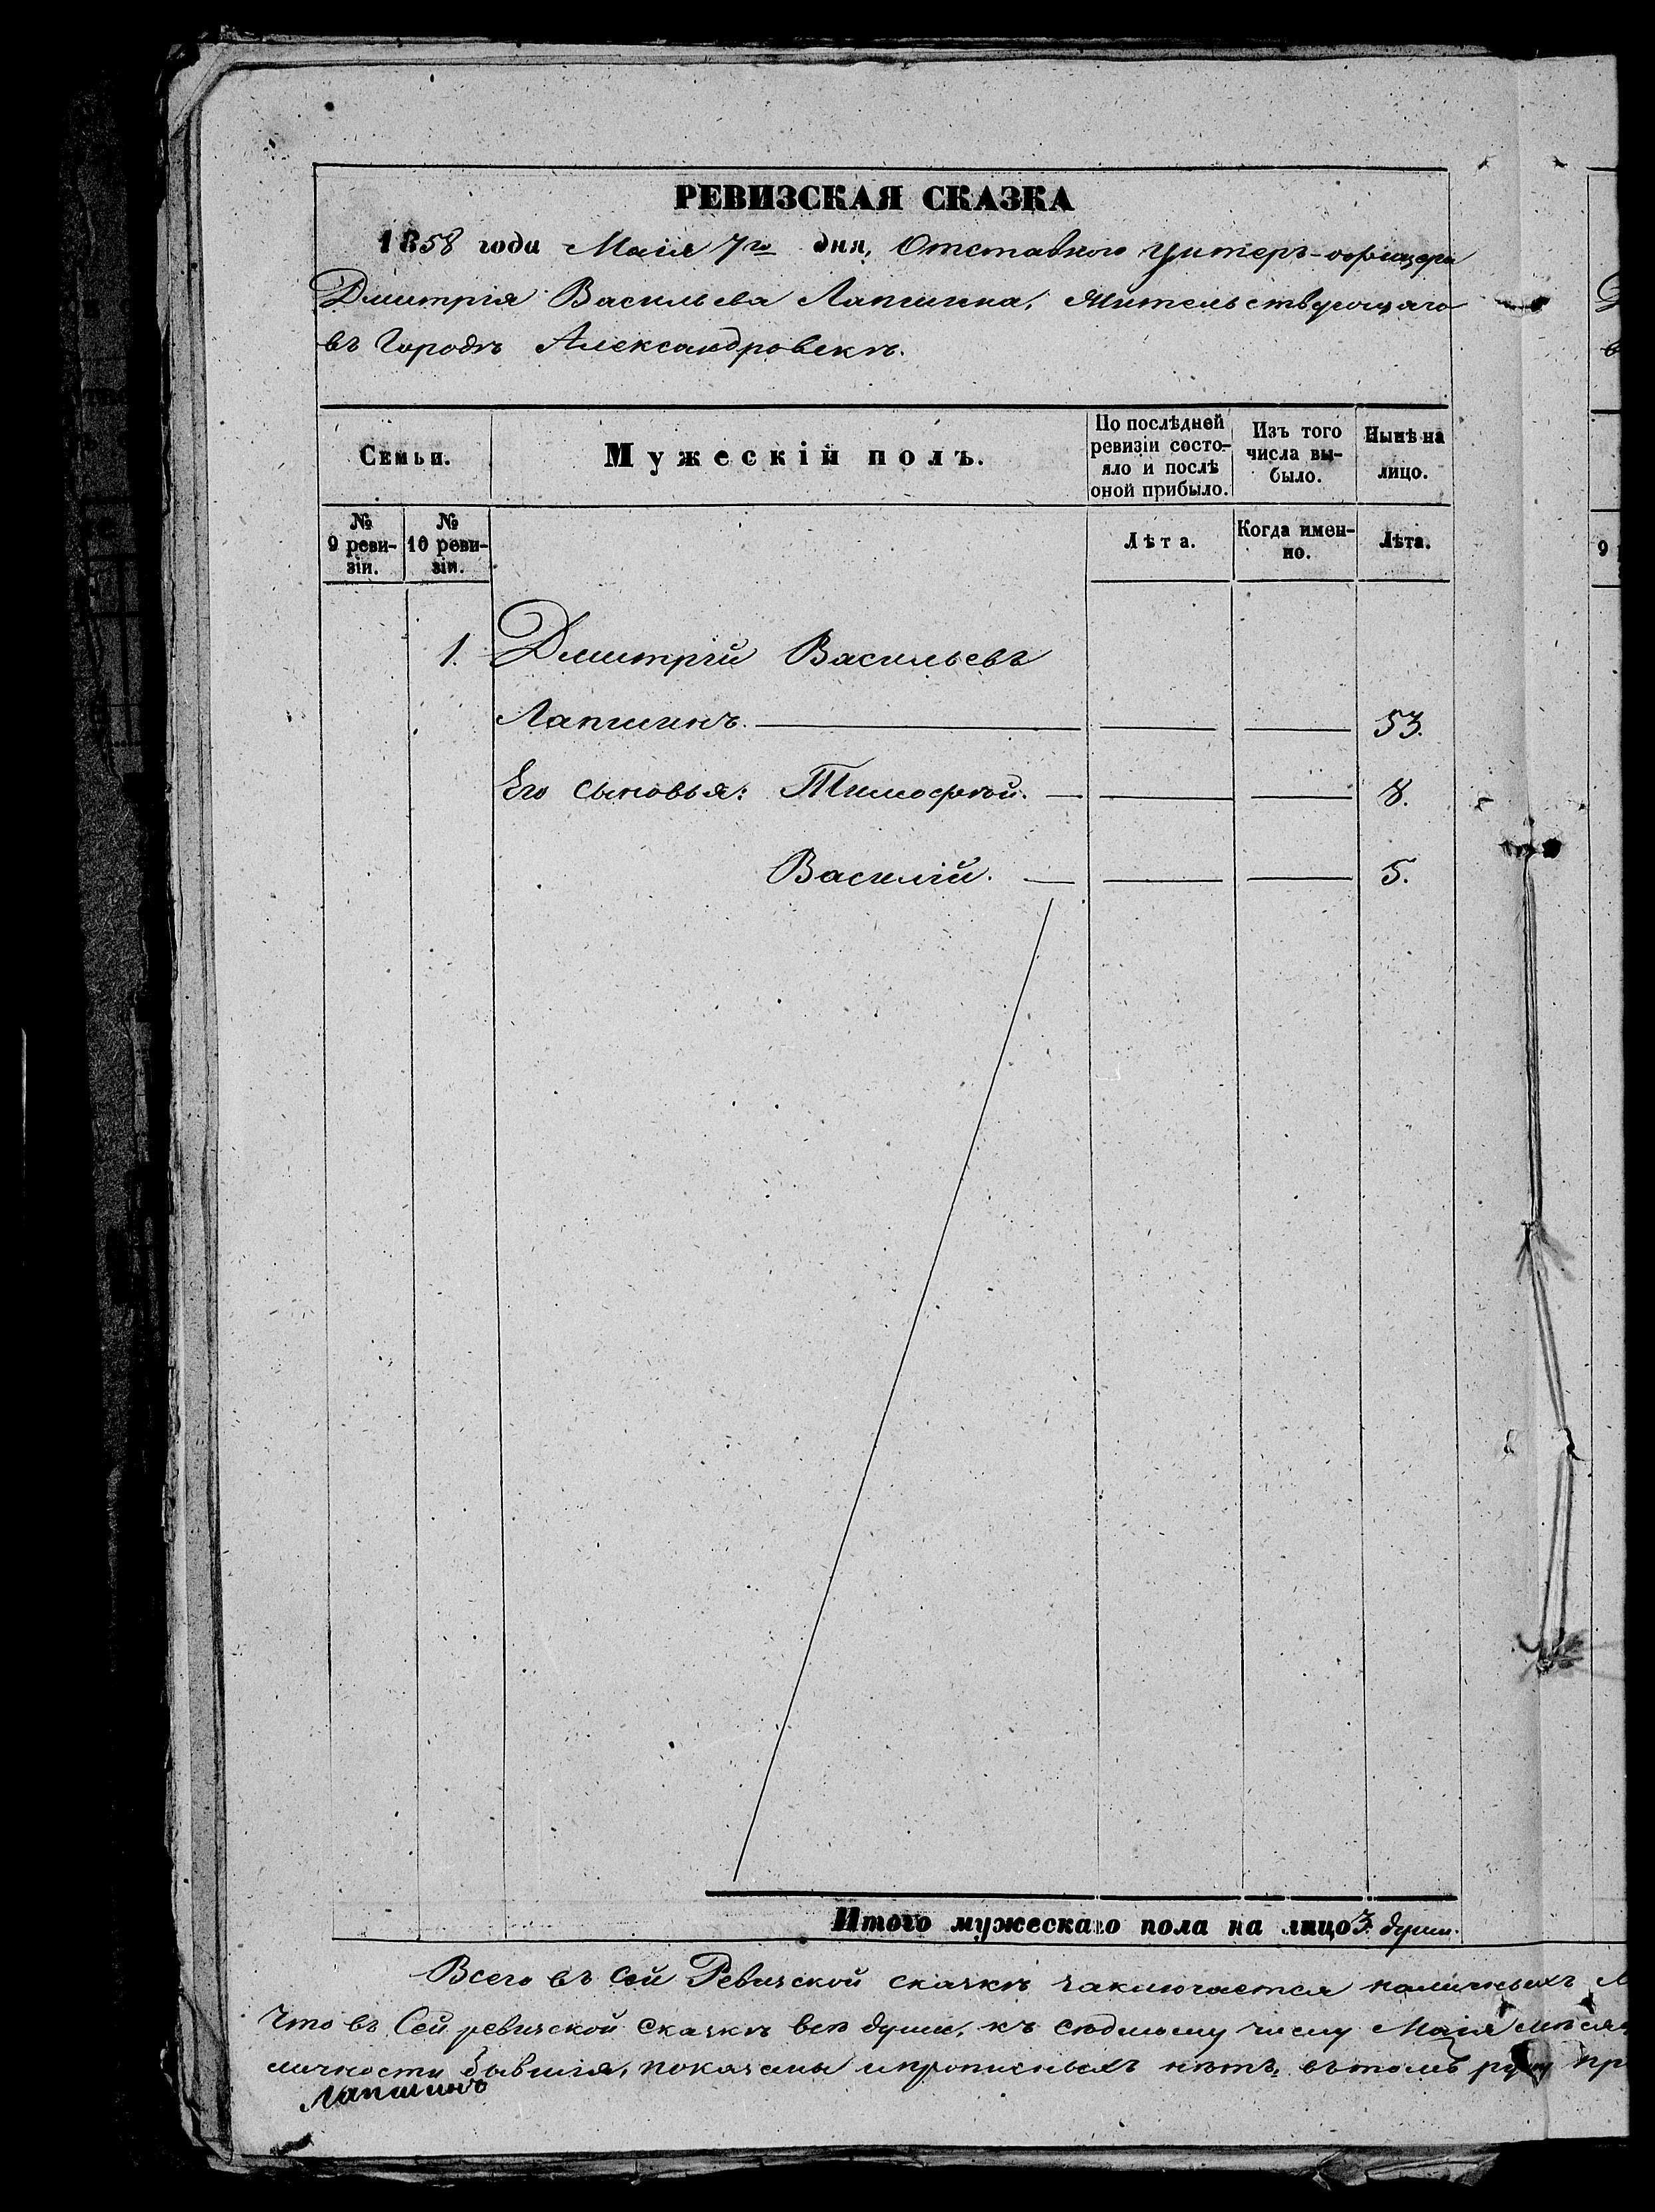 РЕВИЗСКАЯ СКАЗКА
1858 года Маія 7го дня, Отставного Унтеръ-офицера
Дмитрія Васильева Лапшина, Жительствующаго
въ Городѣ Александровскѣ.
Семьи.
Мужескій полъ.
По послѣдней
ревизіи состо-
яло и послѣ
оной прибыло.
Изъ того
числа вы-
было.
Нынѣ на
лицо.
№
9 реви-
зіи.
№
10 реви-
зіи.
Лѣта.
Когда имен-
но.
Лѣта.
1. Дмитрій Васильевъ
Лапшинъ. 53.
Его сыновья: Тимофей. 8.
Василій. 5.
Итого мужескаго пола на лицо 3 души.
Всего въ сей Ревизской сказкѣ заключается наличныхъ
Что въ Сей ревизской сказкѣ всѣ души, къ седьмому числу Маія
личности бывшія, показаны и прописныхъ нѣтъ, въ томъ
Лапшинъ
9